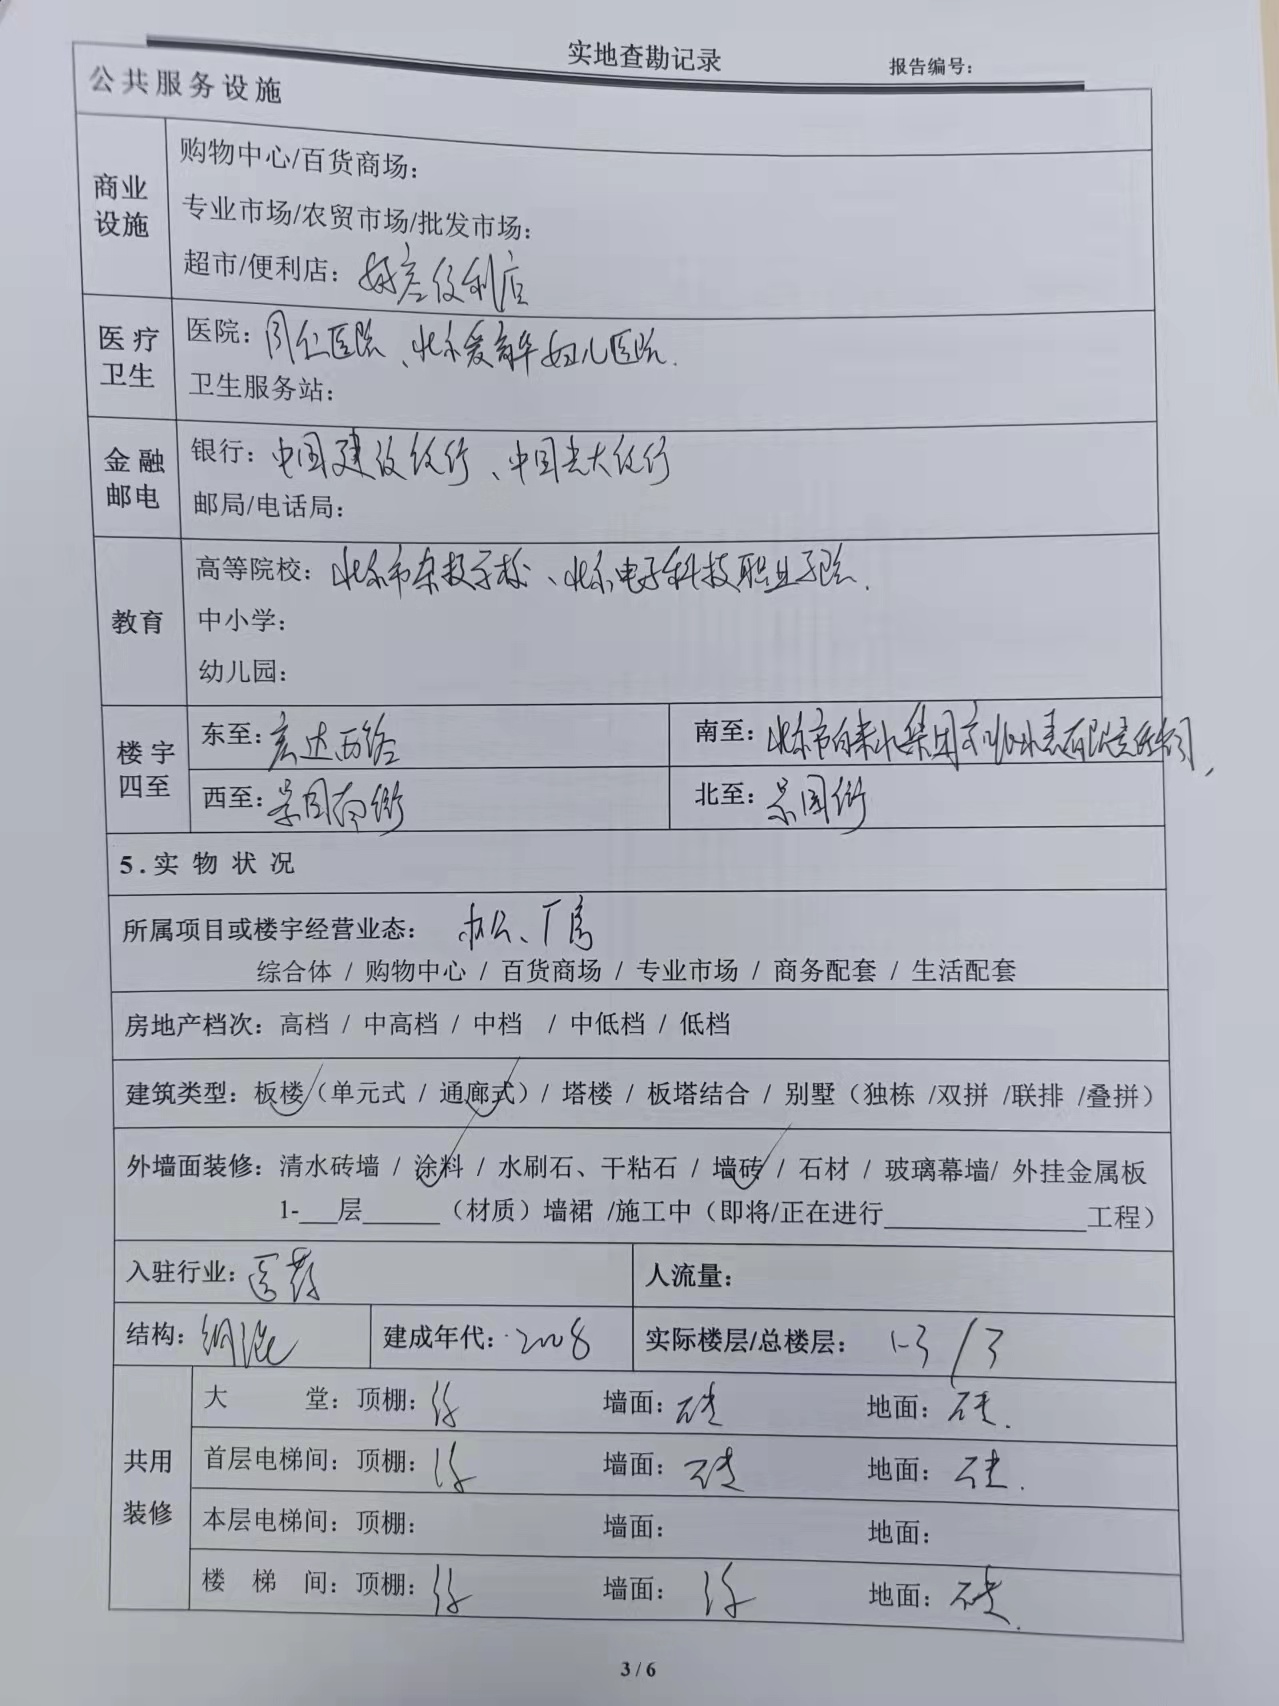 实地查勘记录
报告编号：
公共服务设施
商业设施
购物中心/百货商场：
专业市场/农贸市场/批发市场：
超市/便利店：好彦便利店
医疗卫生
医院：同仁医院、北京爱育华妇儿医院.
卫生服务站：
金融邮电
银行：中国建设银行、中国光大银行
邮局/电话局：
教育
高等院校：北京市杂技学校、北京电子科技职业学院.
中小学：
幼儿园：
楼宇四至
东至：宏达西路
南至：北京市自来水集团京兆水表有限责任公司，
西至：景园南街
北至：景园街
5.实物状况
所属项目或楼宇经营业态：办公、厂房
综合体 / 购物中心 / 百货商场 / 专业市场 / 商务配套 / 生活配套
房地产档次：高档 / 中高档 / 中档 / 中低档 / 低档
建筑类型：板楼（单元式 / 通廊式）/ 塔楼 / 板塔结合 / 别墅（独栋 /双拼 /联排 /叠拼）
外墙面装修：清水砖墙 / 涂料 / 水刷石、干粘石 / 墙砖 / 石材 / 玻璃幕墙/ 外挂金属板
1-___层______（材质）墙裙 /施工中（即将/正在进行________________工程）
入驻行业：医药
人流量：
结构：钢混
建成年代：2008
实际楼层/总楼层： 1-3 / 3
共用装修
大堂：顶棚：涂 墙面：砖 地面：砖.
首层电梯间：顶棚：涂 墙面：砖 地面：砖.
本层电梯间：顶棚： 墙面： 地面：
楼梯间：顶棚：涂 墙面：涂 地面：砖.
3 / 6